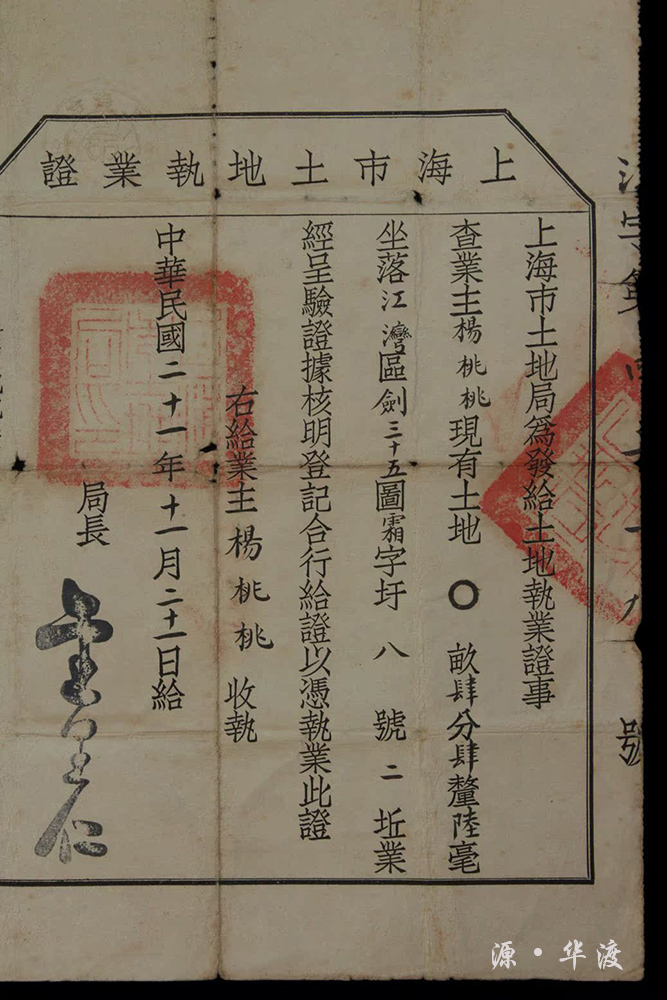 上海市土地執業證
上海市土地局為發給土地執業證事
查業主楊桃桃現有土地〇畝肆分肆釐陸毫
坐落江灣區劍三十五圖霜字圩八號二坵業
經呈驗證據核明登記合行給證以憑執業此證
右給業主楊桃桃收執
中華民國二十一年十一月二十一日給
局長
號
源·华渡